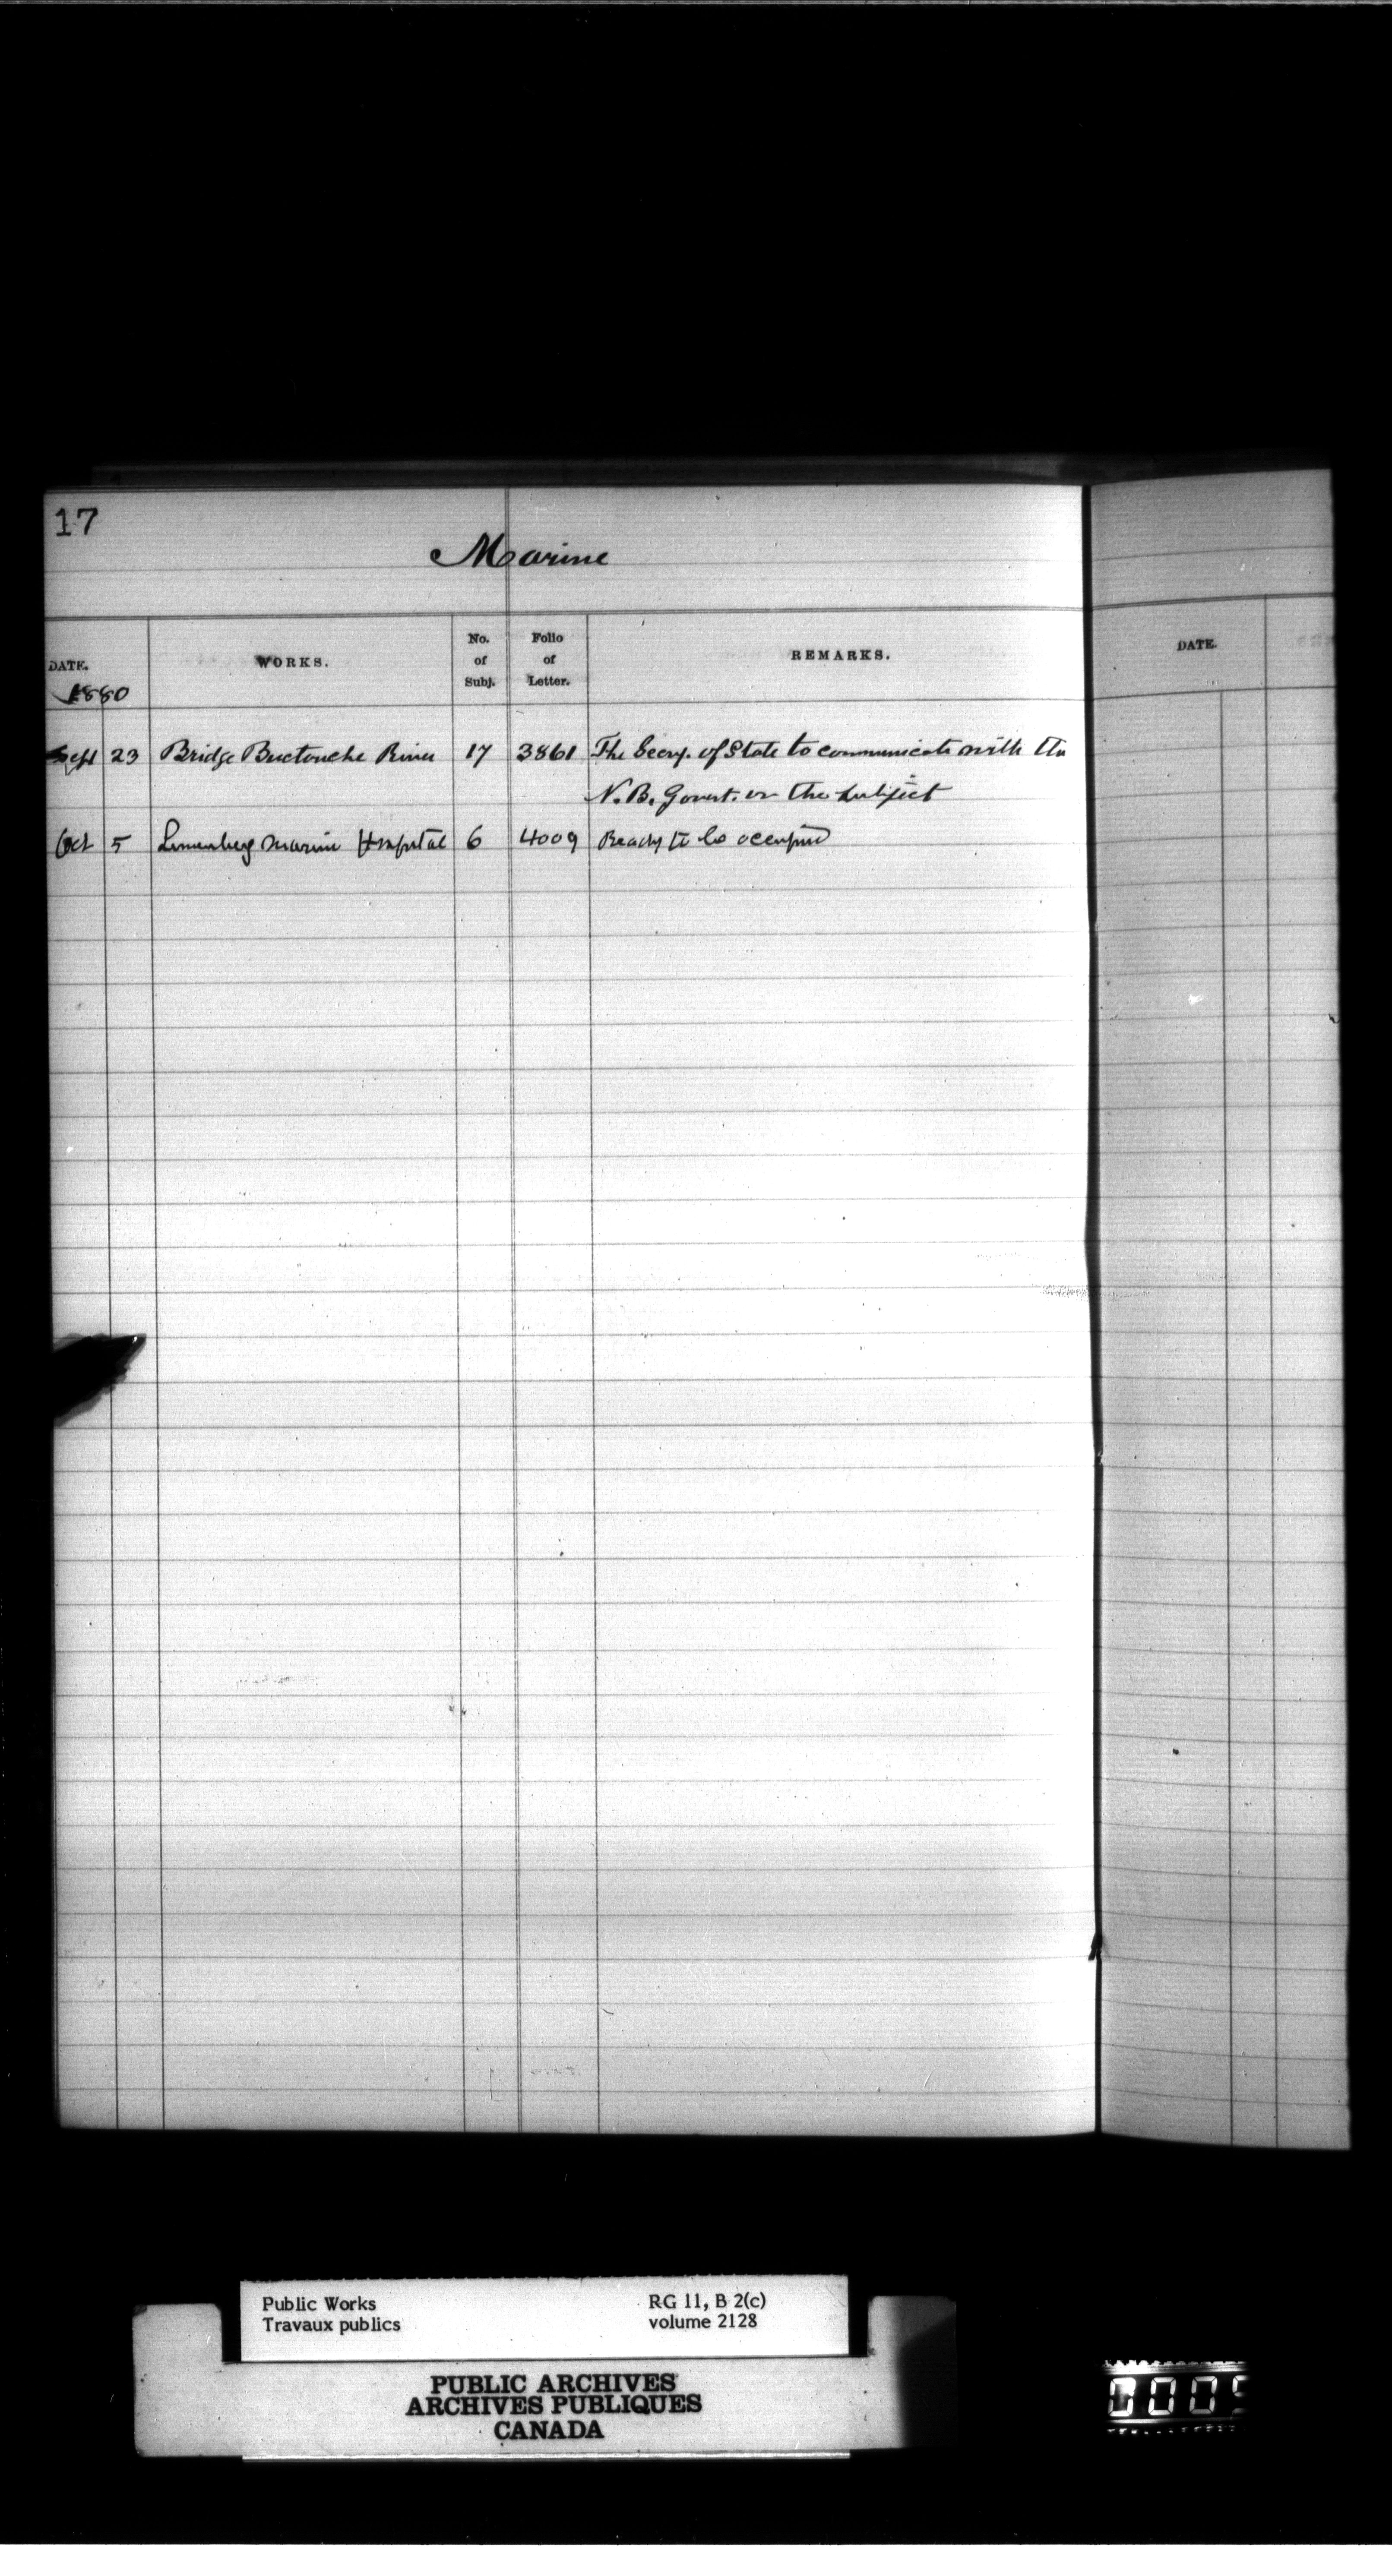 17
Marine
DATE. WORKS. No. of Subj. Folio of Letter. REMARKS. DATE.
1880
Sept 23 Bridge Buctouche River 17 3861 The Secry. of State to communicate with the
N. B. Govnt. on the subject
Oct 5 Lunenberg Marine Hospital 6 4009 Ready to be occupied
Public Works RG 11, B 2(c)
Travaux publics volume 2128
PUBLIC ARCHIVES
ARCHIVES PUBLIQUES
CANADA